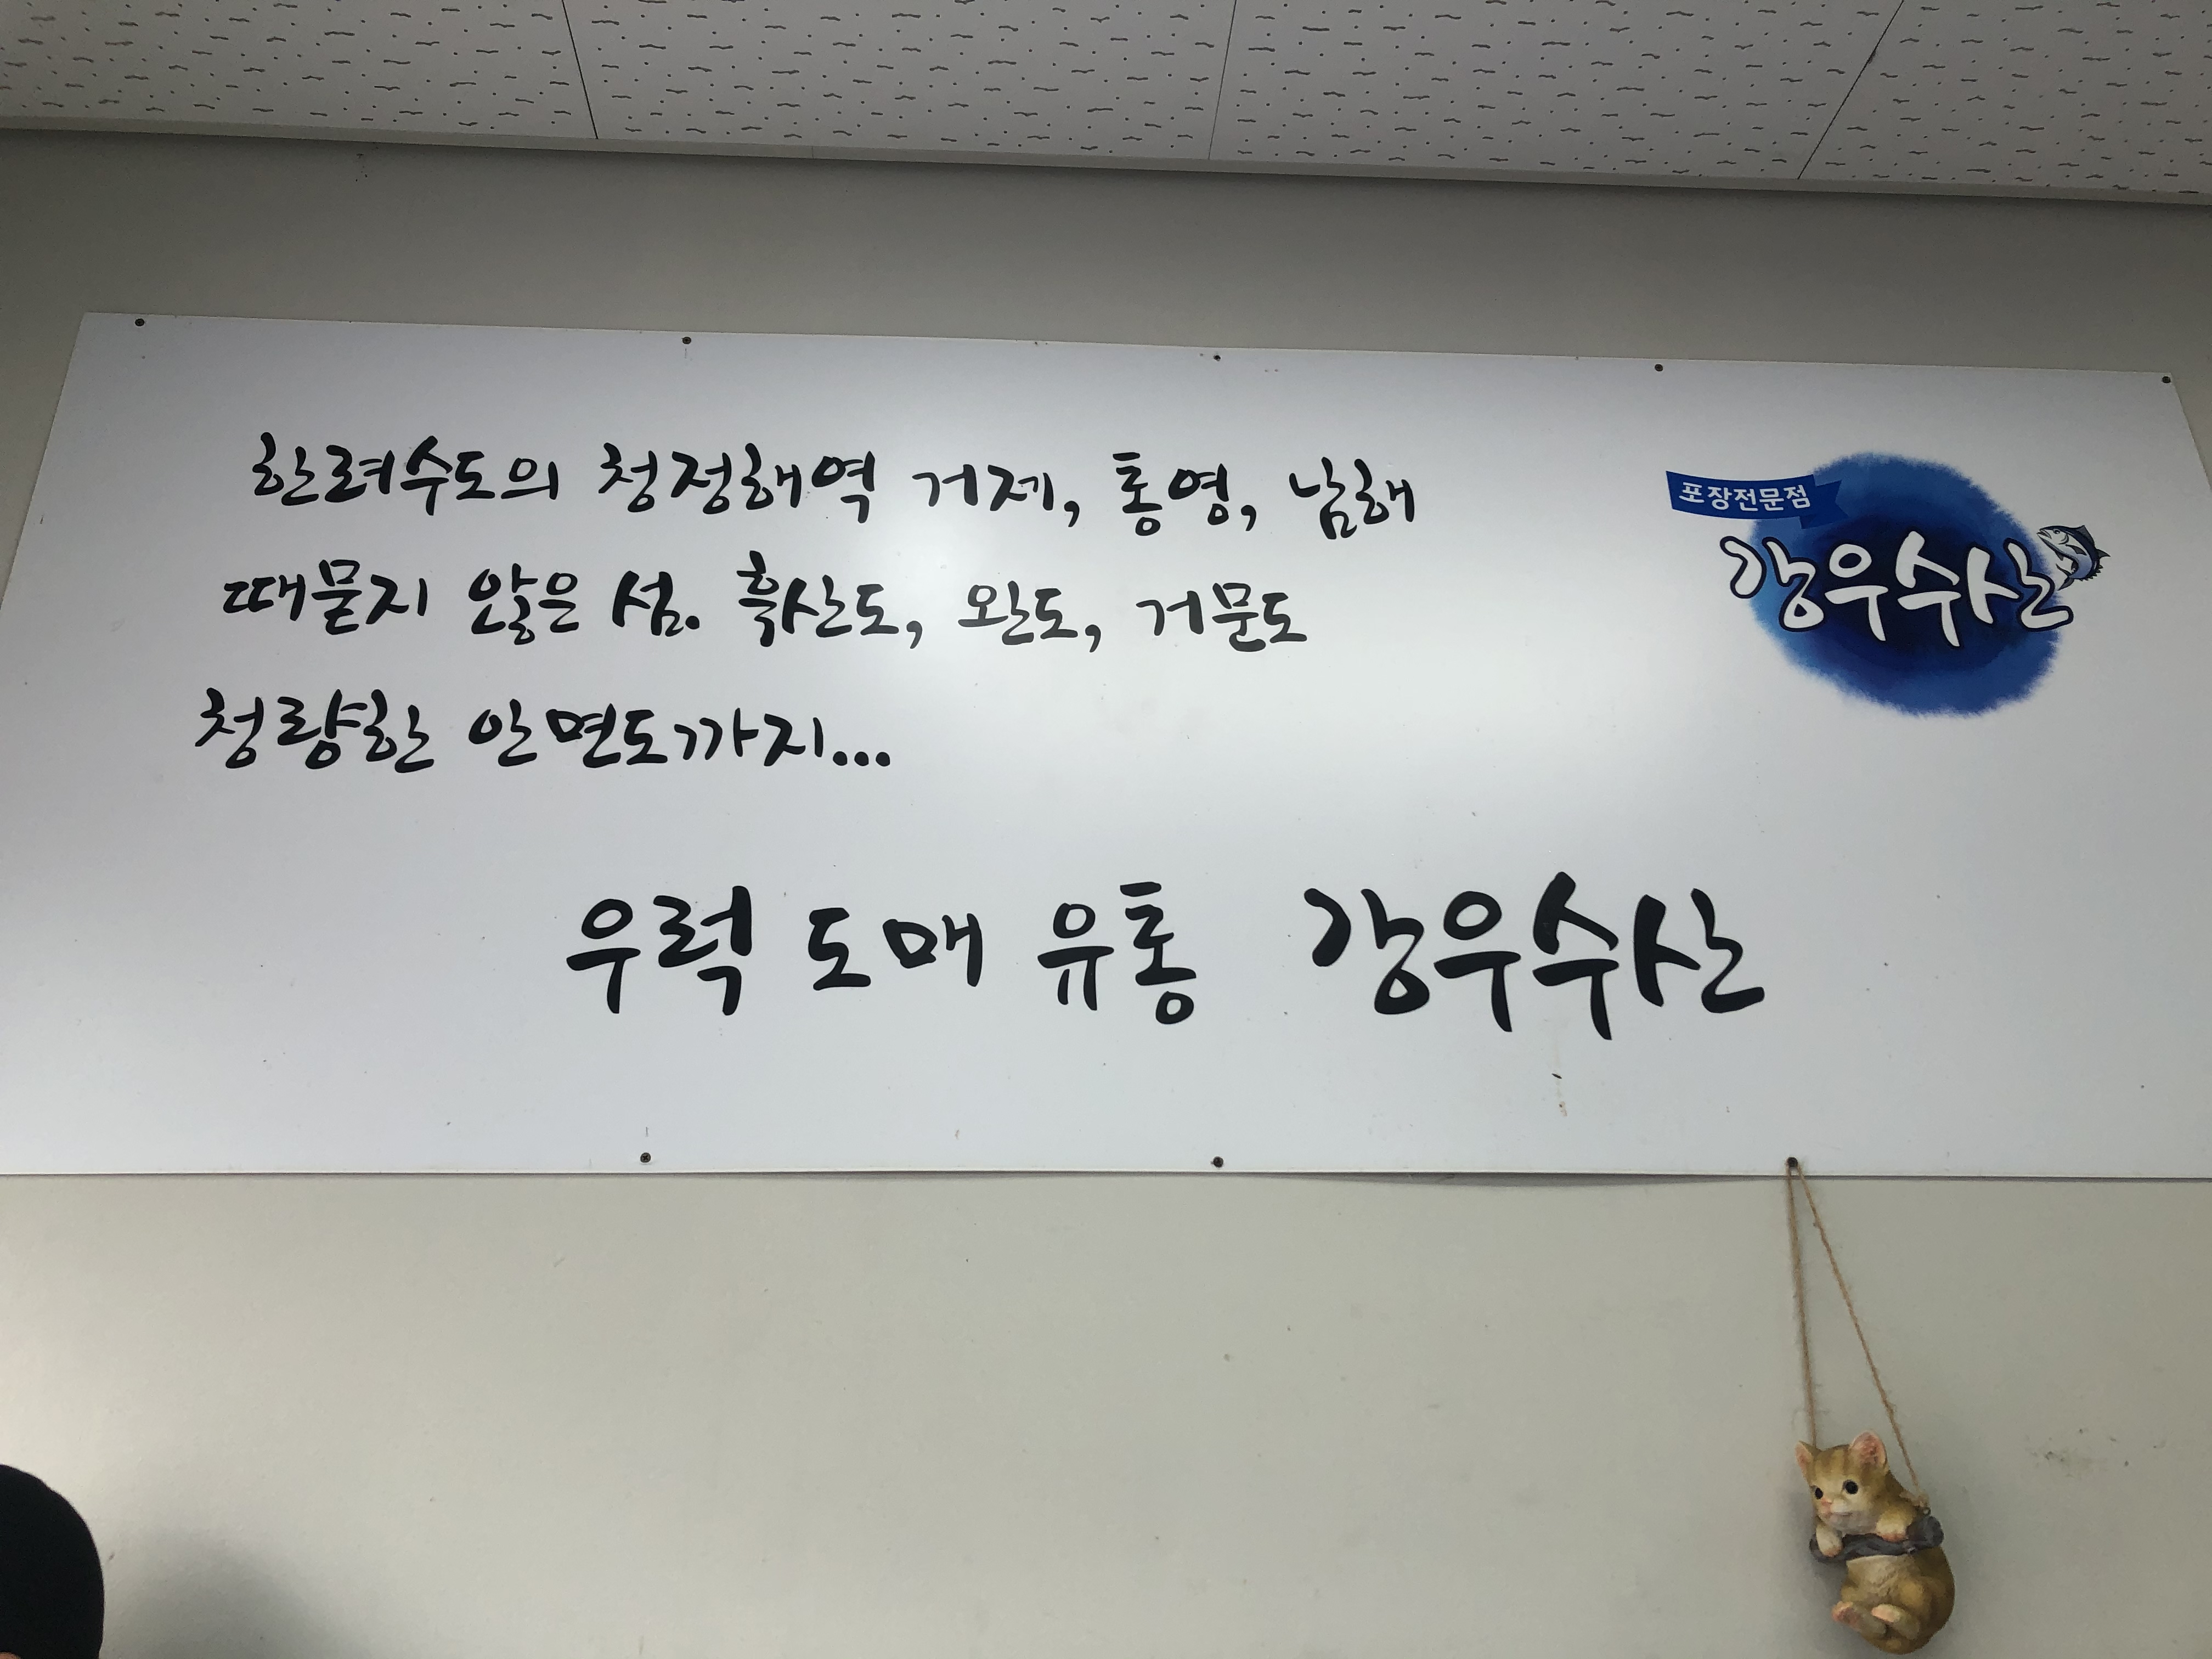 한려수도의 청정해역 거제, 통영, 남해
때묻지 않은 섬. 흑산도, 완도, 거문도
청량한 안면도까지...
우럭 도매 유통 강우수산
포장전문점
강우수산